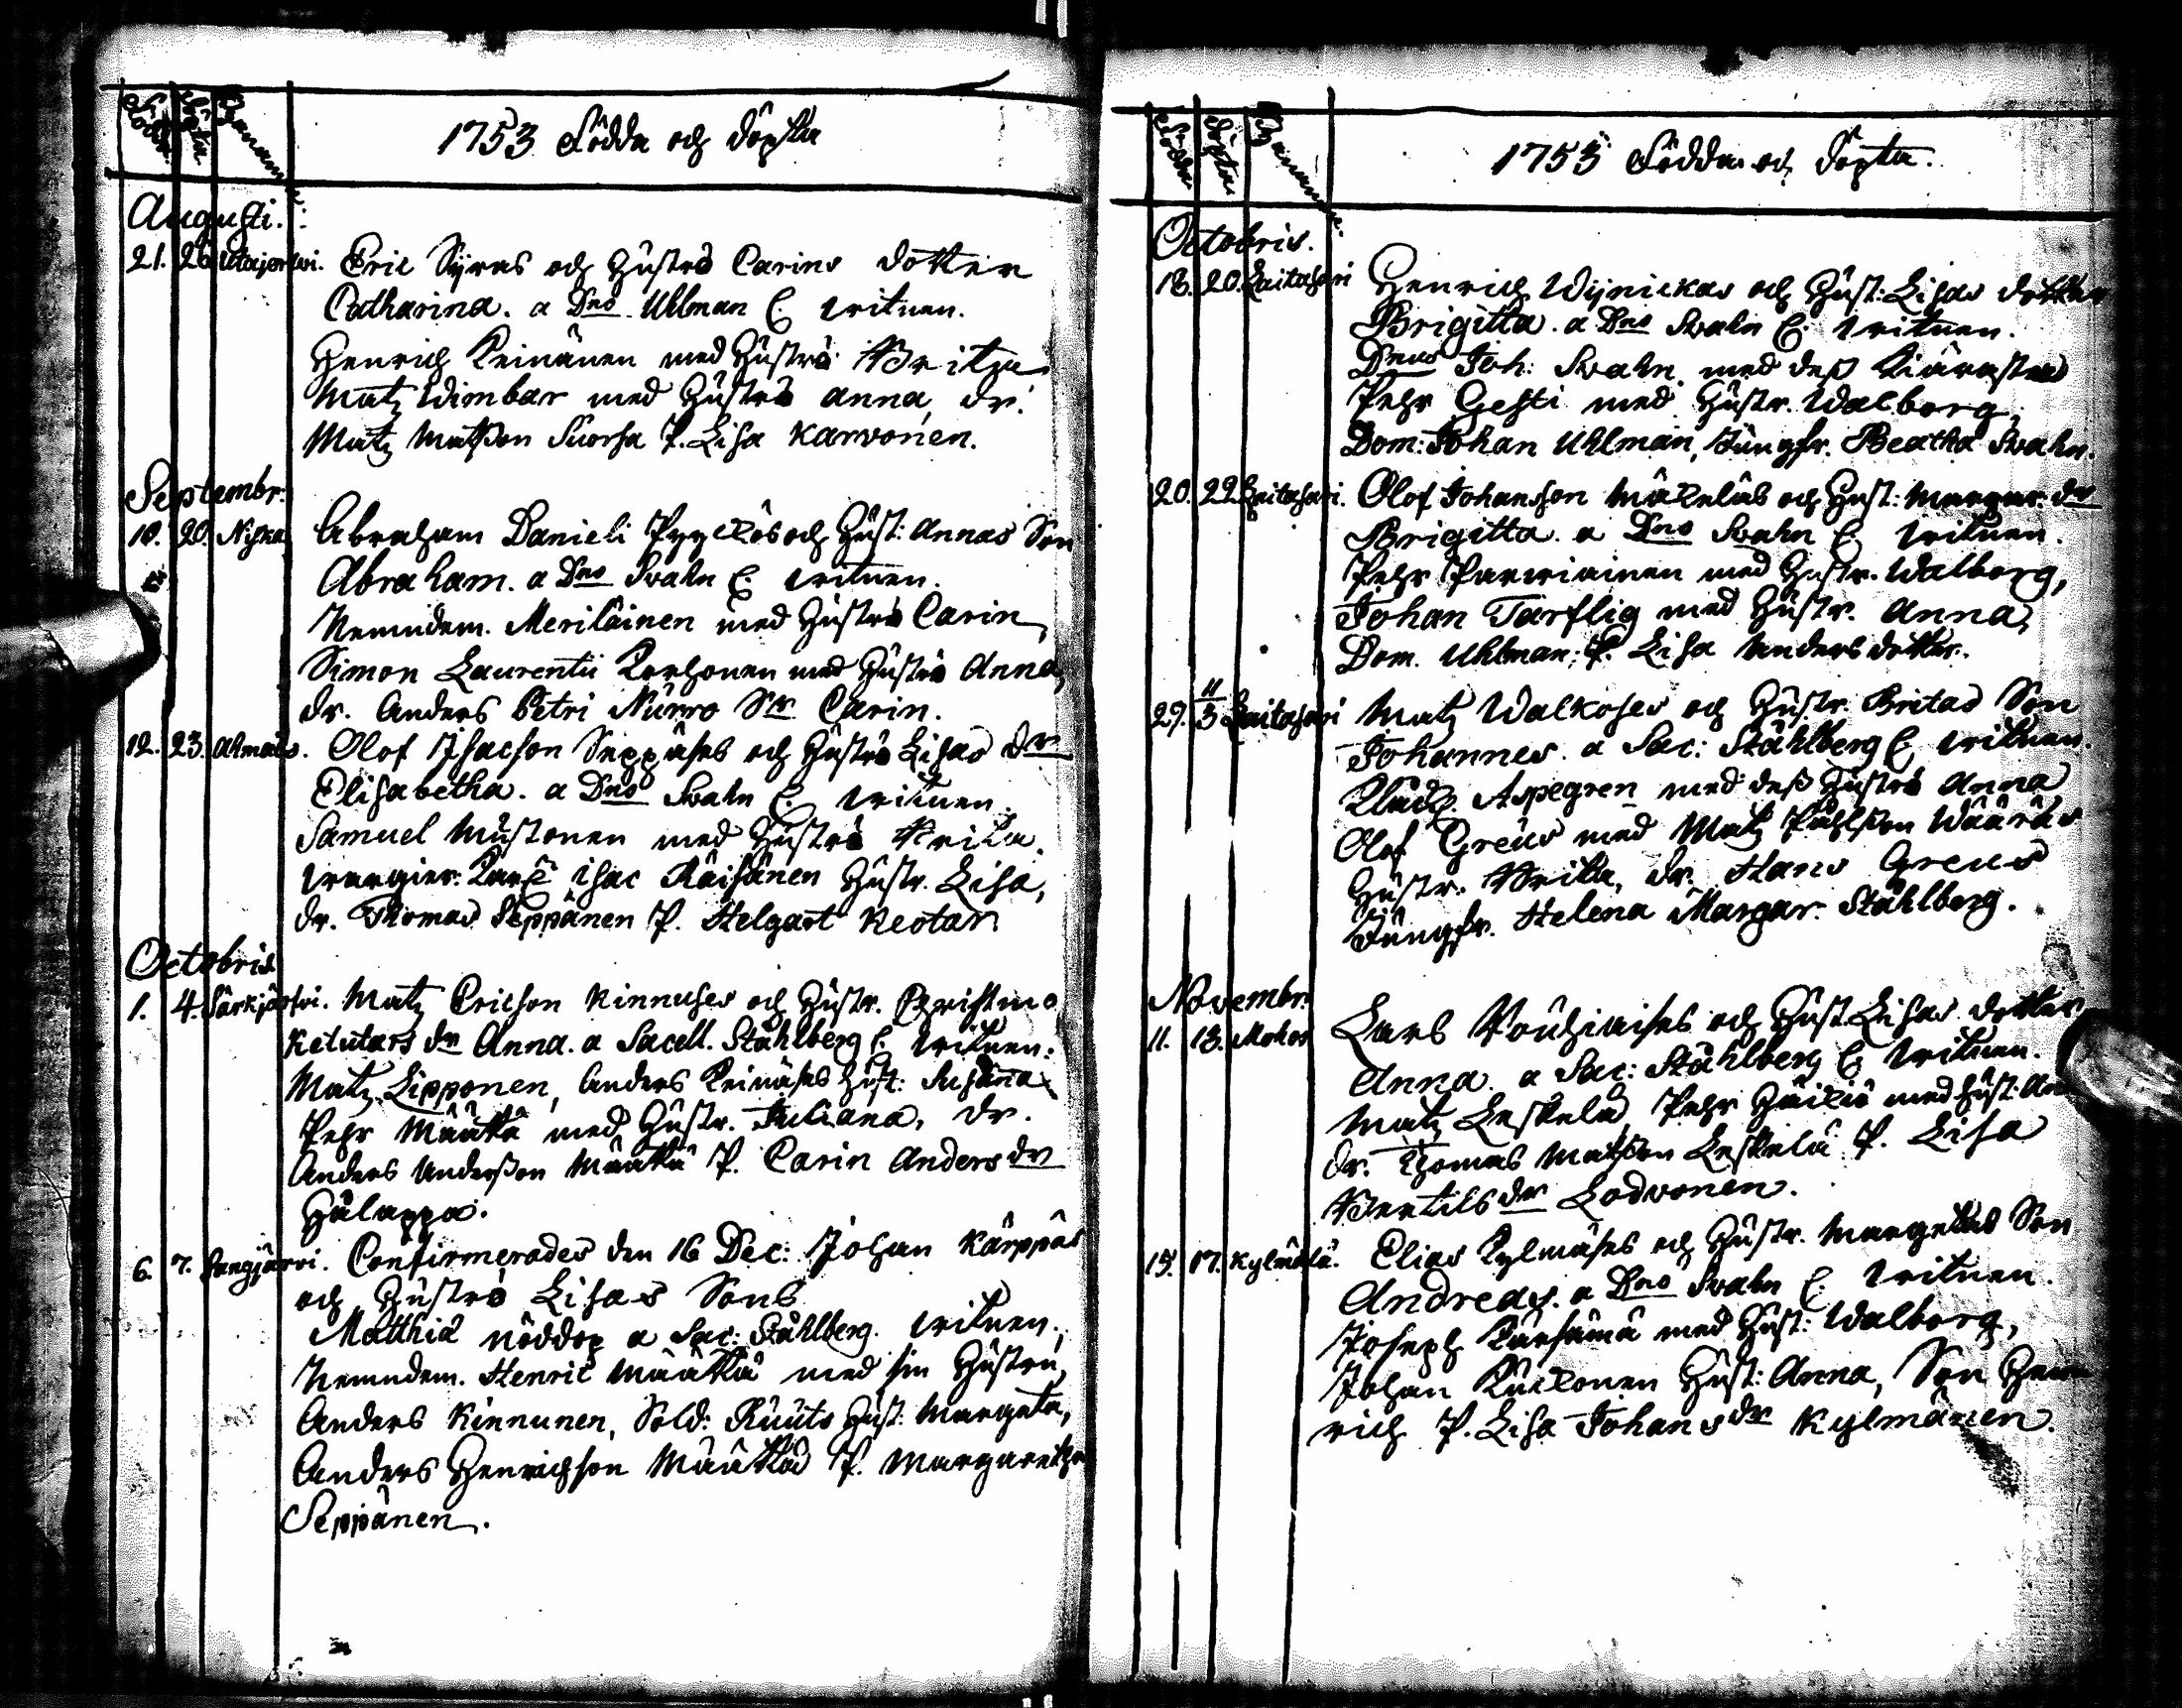 Födde Döpte
1753 Födda och döpta
Augusti.
21. 26. Utajerwi. Eric Syras och Hustrus Carins dotter
Catharina. a Dno Uhlman C. Vitnen.
Henrich Keinänen med Hustru Brita
Matz Wimbar med Hustru Anna, dr.
Matz Matßon Suorsa P. Lisa Karvonen.
Septembr.
10. 20. Niska Abraham Danieli Pyyckös och Hust: Annas Son
Abraham. a Dno Svahn C. Vitnen.
Nemndem. Meriläinen med Hustru Carin,
Simon Laurentii Korhonen med Hustru Anna,
dr. Anders Petri Nurro Str Carin.
12. 23. Ahmas. Olof Isacson Seppäses och Hustrus Lisas dr
Elisabetha. a Dno Svahn C. Vitnen.
Samuel Mustonen med Hustru Brita.
Isac Räisänen Hustr. Lisa,
dr. Thomas Seppänen P. Helgart Keotar
Octobris
1. 4. Särkijärvi. Matz Ericson Kinnuses och Hustr. Christina
Ketutars dr Anna. a Sacell. Ståhlberg C. Vitnen:
Matz Lipponen, Anders Keinäses Hust: Susanna
Pehr Määttä med Hustr. Juliana, dr.
Anders Anderßon Määttä P. Carin Anders dr
Hålappa.
6. 7. Sangjärvi. Confirmerades den 16 Dec: Johan Kärppäs
och Hustrus Lisas Sons
Matthia nöddop a Sac: Ståhlberg. Vitnen.
Nemndem. Henric Määttä med sin Hustru,
Anders Kinnunen, Sold: Ruuts Hust: Margeta,
Anders Henrichson Määttä P. Margaretha
Seppänen.
Födde Döpte
1753 Födda och döpta.
Octobris.
18. 20. Laitasari Henrich Wijnickas och Hust: Lisas dotter
Brigitta. a Dno Svahn C. Vitnen.
Dnus Joh: Svahn med deß Kiärasta
Pehr Gesti med Hustr. Walborg,
Dom: Johan Uhlman, Jungfr. Beatha Svahn.
20. 22 Laitasari. Olof Johanson Mäkeläs och Hust: Margar: dr
Brigitta. a Dno Svahn C. Vitnen.
Pehr Parviainen med Hustr. Walborg,
Johan Tarflig med Hustr. Anna,
Dom. Uhlman: P. Lisa Anders dotter.
29. 11/3 Laitasari Matz Walkoses och Hustr. Britas Son
Johannes. a Sac: Ståhlberg C. Vitnen.
Aspegren med deß Hustru Anna
Olof Greus med Matz Påhlßon Wääräs
Hustr. Britta, dr. Hans Greus
Jungfr. Helena Margar. Ståhlberg.
Novembr.
11. 13. Muhos Lars Vouhiaises och Hust Lisas dotter
Anna. a Sac: Ståhlberg C. Vitnen.
Matz Leskelä, Pehr Häikiö med Hust: An
dr. Thomas Matßon Leskelä P. Lisa
Bertils dr Lodvonen.
15. 17. Kylmälä. Elias Kylmäses och Hustr. Margetas Son
Andreas. a Dno Svahn C. Vitnen.
Joseph Kärsämä med Hust: Walborg,
Johan Kuckonen Hust: Anna, Son Hen
rich P. Lisa Johans dr Kylmänen.